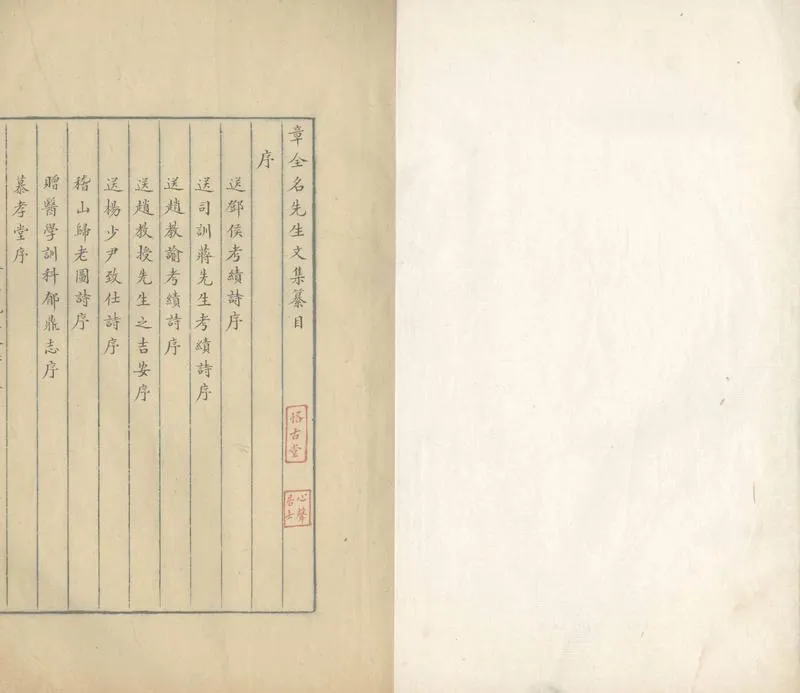 章全名先生文集纂目
悋古堂
心聲居士
序
送鄧侯考績詩序
送司訓蔣先生考績詩序
送趙教諭考績詩序
送趙教授先生之吉安序
送楊少尹致仕詩序
稽山歸老圖詩序
贈醫學訓科郁鼎志序
慕孝堂序